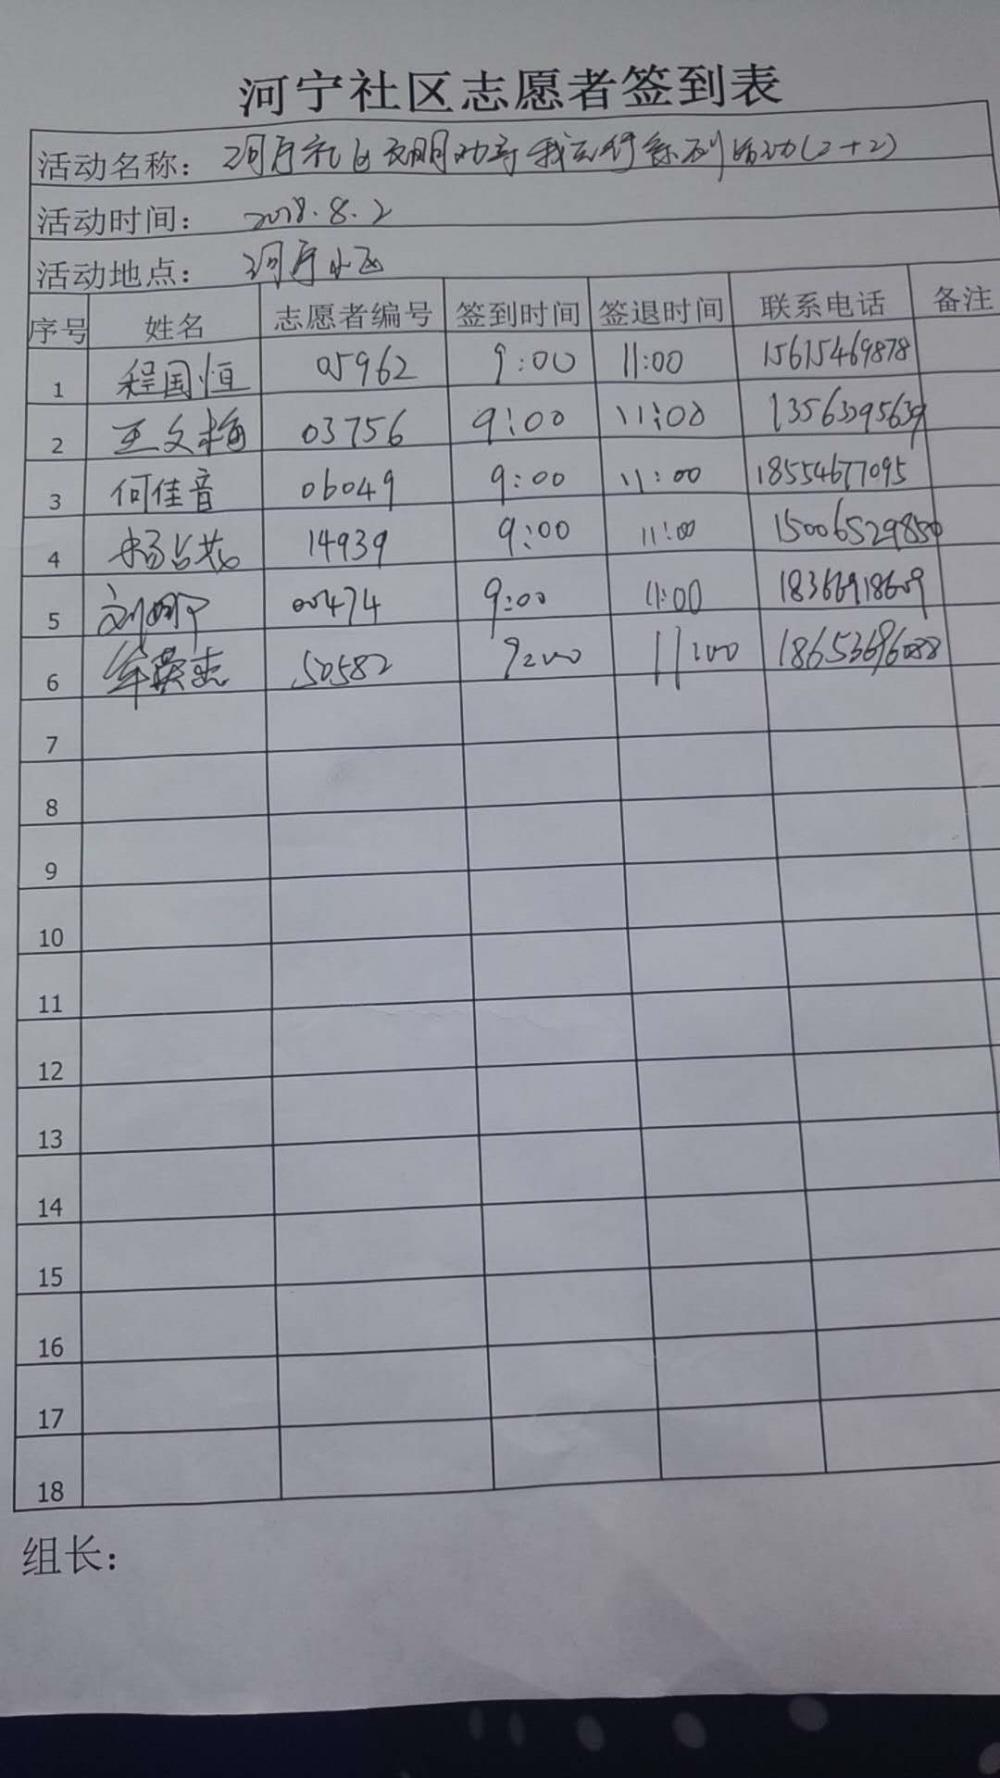 河宁社区志愿者签到表
活动名称： 河宁社区文明劝导我先行系列活动(2+2)
活动时间： 2018.8.2
活动地点： 河宁小区
序号 姓名 志愿者编号 签到时间 签退时间 联系电话 备注
1 程国恒 05962 9:00 11:00 15615469878
2 王文梅 03756 9:00 11:00 13563395639
3 何佳音 06049 9:00 11:00 18554677095
4 杨占花 14939 9:00 11:00 15006529850
5 刘 00474 9:00 11:00 18366918609
6 50582 9:00 11:00 18653696088
7
8
9
10
11
12
13
14
15
16
17
18
组长：